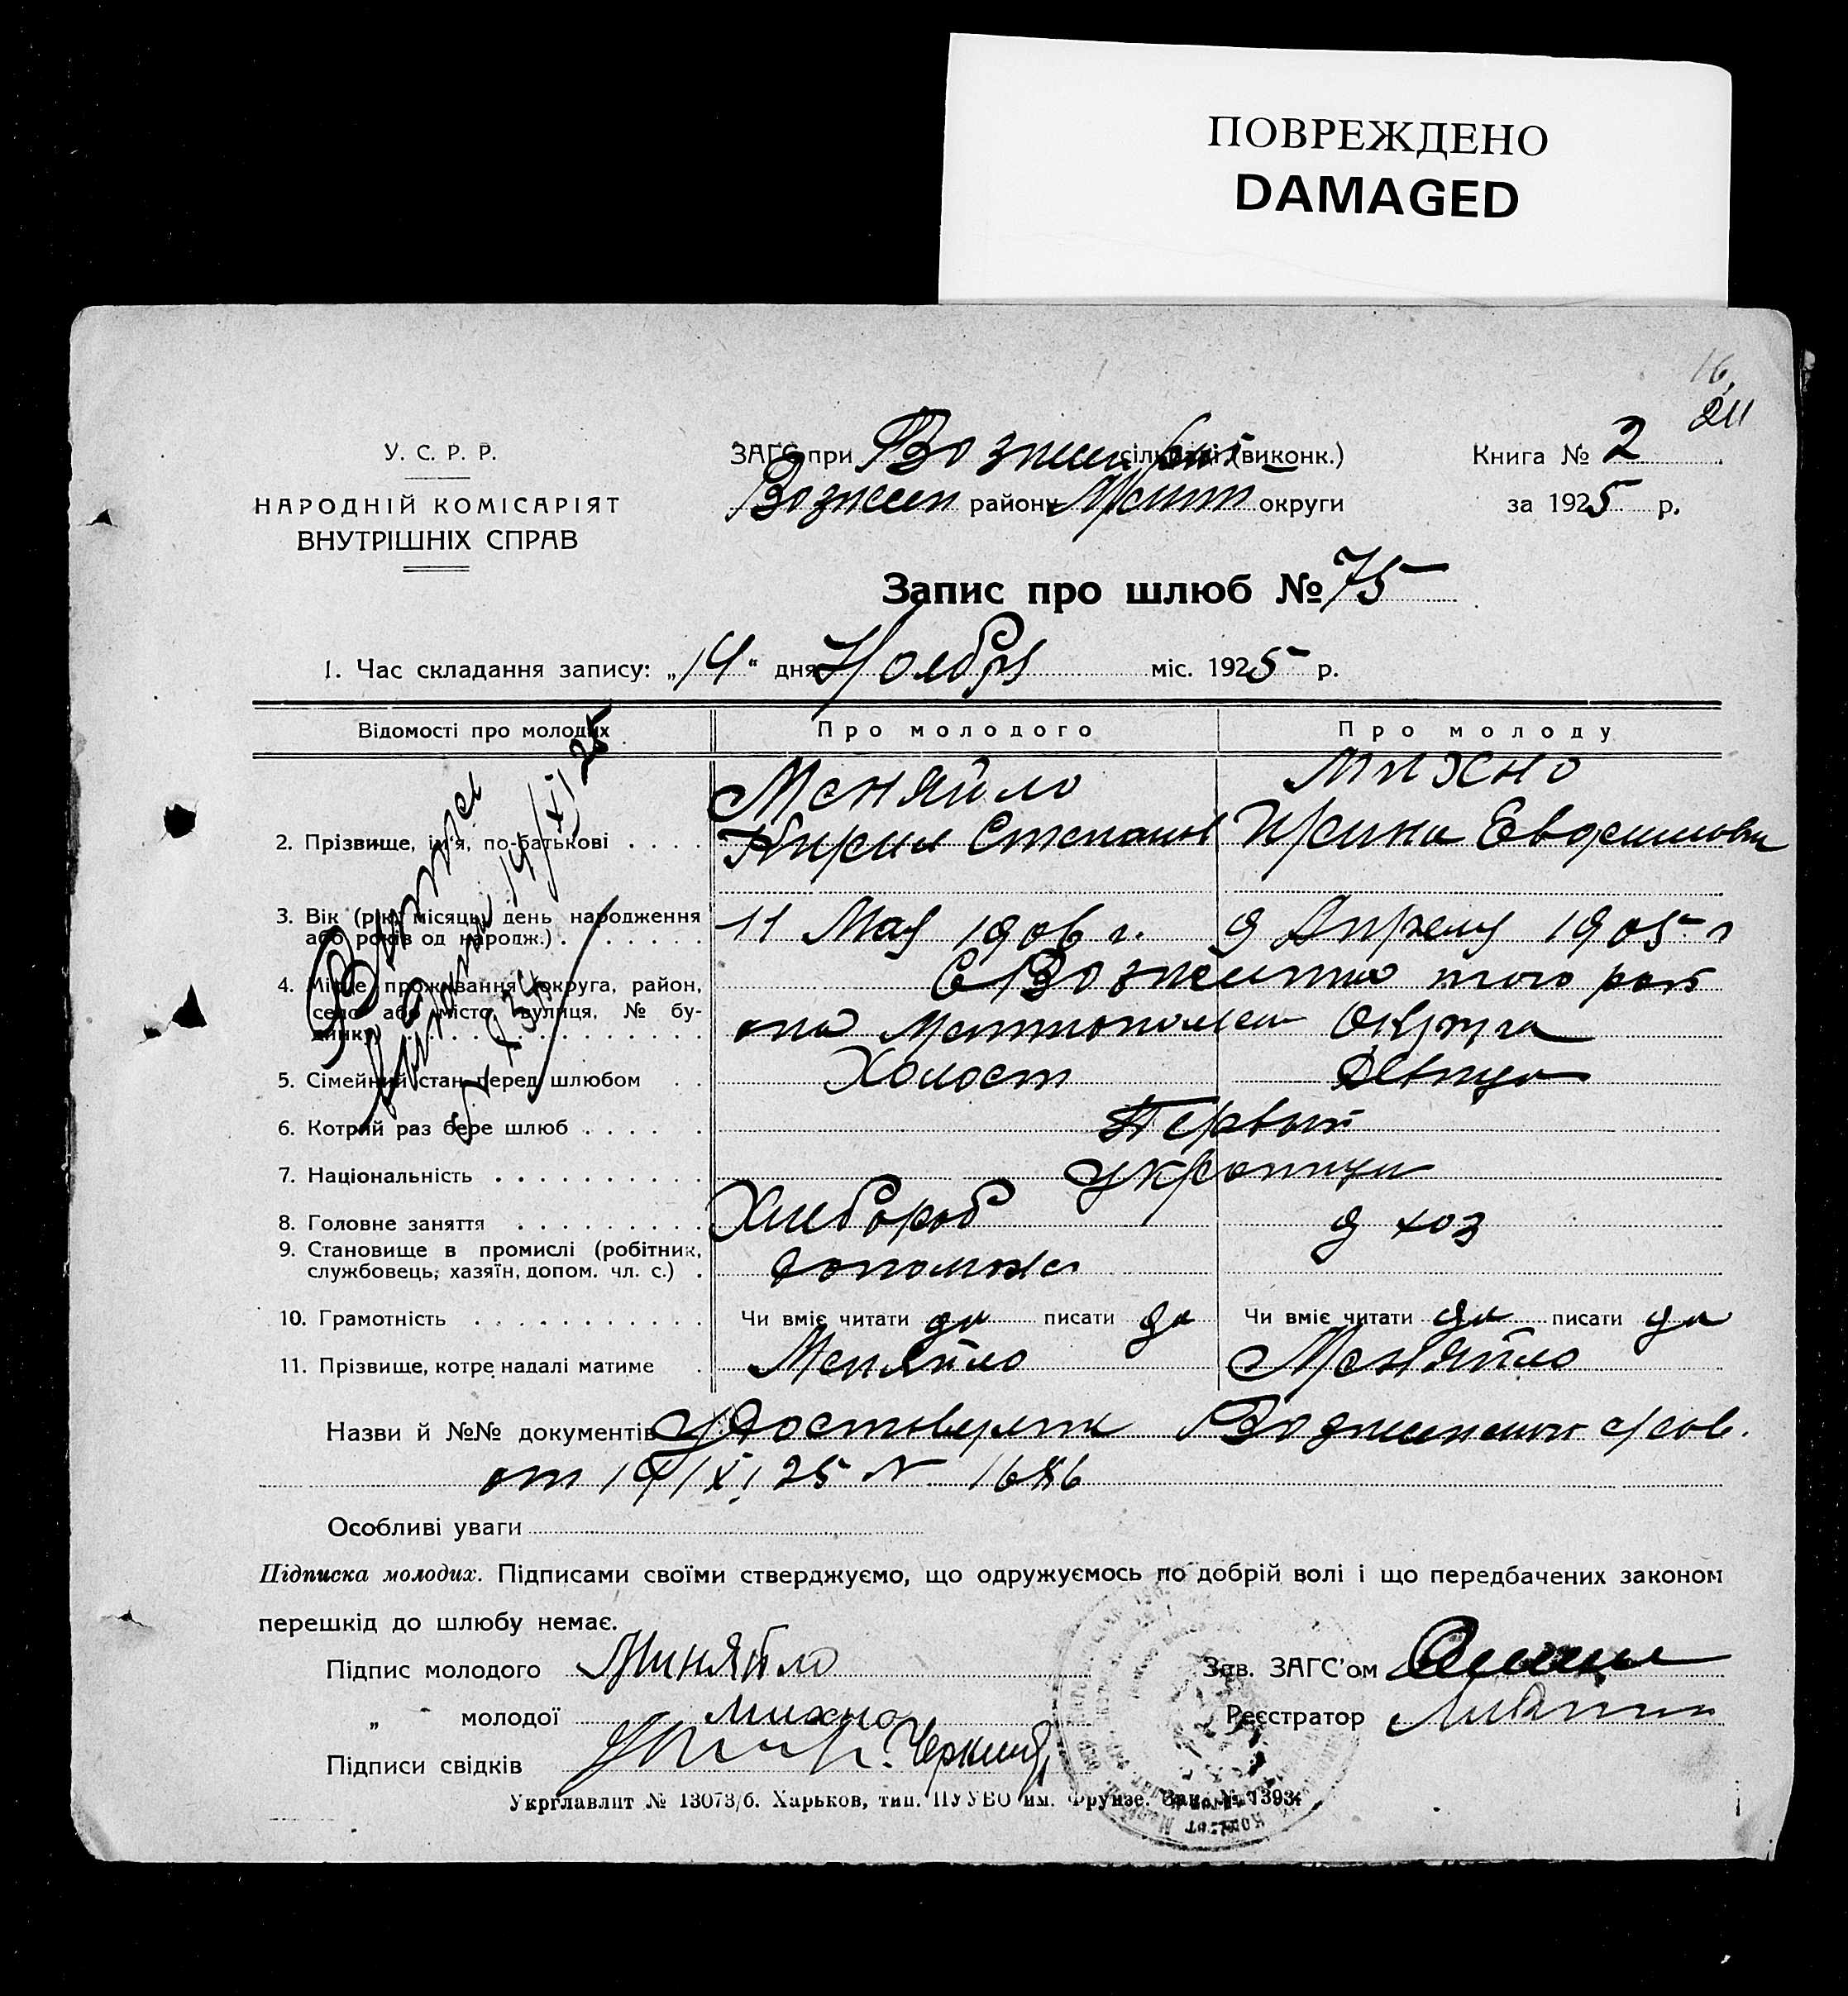 ПОВРЕЖДЕНО
DAMAGED
16
У. С. Р. Р.
НАРОДНІЙ КОМІСАРІЯТ
ВНУТРІШНІХ СПРАВ
ЗАГС при сільраді (виконк.)
району округи
Книга № 2
за 1925 р.
Запис про шлюб № 75
1. Час складання запису: „14“ дня Ноября міс. 1925 р.
Відомості про молодих
Про молодого
Про молоду
2. Прізвище, ім'я, по-батькові
Меняйло
Кирил Степанов
Михно
Ирина
3. Вік (рік, місяць, день народження
або років од народж.)
11 Мая 1906 г.
9 Апреля 1905 г
4. Місце проживання (округа, район,
село або місто, вулиця, № бу-
динку)
того рай
она округа
5. Сімейний стан перед шлюбом
Холост
Девица
6. Котрий раз бере шлюб
Первый
7. Національність
украинцы
8. Головне заняття
Хлебороб
д хоз
9. Становище в промислі (робітник,
службовець, хазяїн, допом. чл. с.)
10. Грамотність
Чи вміє читати да писати да
Чи вміє читати да писати да
11. Прізвище, котре надалі матиме
Меняйло
Меняйло
Назви й №№ документів
от 14/XI 25 N 1686
Особливі уваги
Підписка молодих. Підписами своїми стверджуємо, що одружуємось по добрій волі і що передбачених законом
перешкід до шлюбу немає.
Підпис молодого Миняйло
„ молодої Михно
Підписи свідків
Зав. ЗАГС'ом
Реєстратор
Укрглавліт № 13073/б. Харьков, тип. ПУУВО им. Фрунзе. Зак. № 1393.